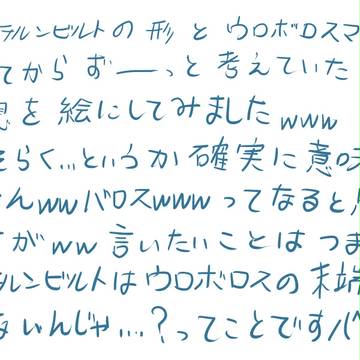 ラルンビルトの形とウロボロスマ
てからずーーっと考えていた
想を絵にしてみましたwww
そらく…というか確実に意味
んwwバロスwwwってなると
がww言いたいことはつま
ルンビルトはウロボロスの末端
ないんじゃ…?ってことですバ